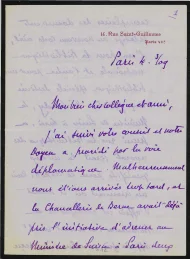 2
16 Rue Saint-Guillaume
Paris VIIe
Paris 4. 3/09
Mon très cher collègue et ami,
J'ai suivi votre conseil et notre
doyen a procédé par la voie
diplomatique. Malheureusement
nous étions arrivés trop tard, et
la Chancellerie de Berne avait déjà
pris l'initiative d'adresser au
Ministre de Suisse à Paris deux